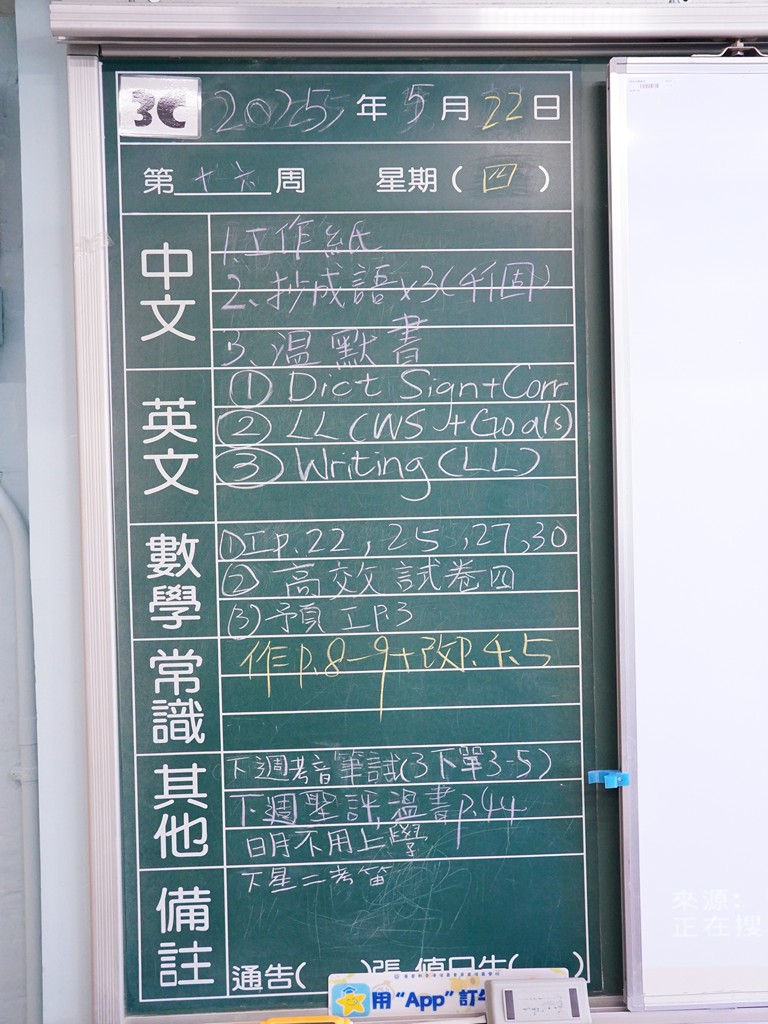 3C 2025年5月22日
第十六周 星期(四)
中文
1.工作紙
2.抄成語x3(4個)
3.溫默書
英文
① Dict Sign+Corr
② LL (WS + Goals)
③ Writing (LL)
數學
①工p.22,25,27,30
② 高效試卷四
③預工P.3
常識
作p.8-9+改p.4、5
其他
下週考音筆試(3下單3-5)
下週聖評,溫書p.44
日月不用上學
備註
下星二考笛
通告( )張 值日生( )
用“App”訂
來源:
正在搜